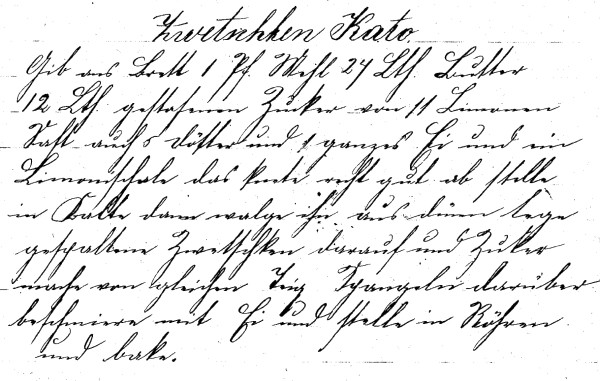 Zwetschken Kato.
Gib ans Brett 1 Pf. Mehl 24 Lth. Butter
12 Lth. gestosenen Zuker von 1½ Limonen
Saft auch 5 Dötter und 1 ganzes Ei und ein
Limonischale das knete recht gut ab stelle
in Kalte dann walge ihn aus dünn lege
gespaltene Zwetschken darauf und Zuker
mache von gleichen Teig Spangeln darüber
beschmiere mit Ei und stelle in Röhren
und bake.